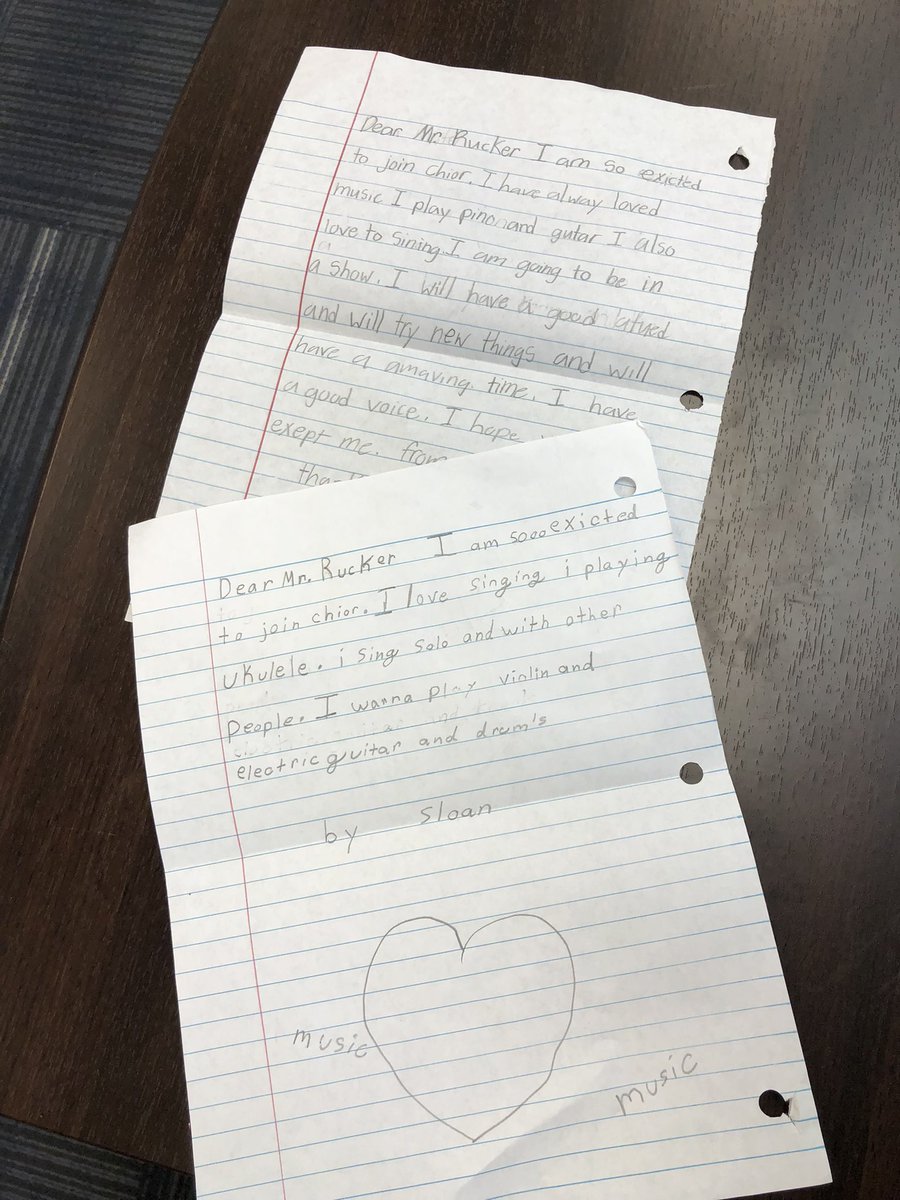 Dear Mr. Rucker I am so exicted
to join chior. I have alway loved
music I play pino and gutar I also
love to sining. I am going to be in
a show. I will have a good atued
and will try new things and will
have a amaving time. I have
a good voice. I hope
exept me. from
Dear Mr. Rucker I am sooo exicted
to join chior. I love singing i playing
ukulele. i sing solo and with other
people. I wanna play violin and
electric guitar and drum's
by sloan
music
music